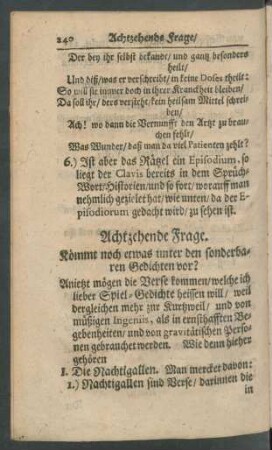 240 Achtzehends Frage/
Der bey ihr selbst erkande/ und gantz besonders
heilt/
Und diß/ was er verschreibt/ in keine Doses theilt:
So will sie immer doch in ihrer Kranckheit bleiben/
Da soll ihr/ ders versteht/ kein heilsam Mittel schrei-
ben/
Ach! wo dann die Vernunfft den Artzt zu brau-
chen fehlt/
Was Wunder/ daß man da viel Patienten zehlt?
6.) Ist aber das Rätzel ein Episodium, so
liegt der Clavis bereits in dem Sprüch-
Wort/ Historien/ und so fort/ worauff man
nehmlich gezielet hat/ wie unten/ da der E-
pisodiorum gedacht wird/ zu sehen ist.
Achtzehende Frage.
Kömmt noch etwas unter den sonderba-
ren Gedichten vor?
Anietzt mögen die Verse kommen/ welche ich
lieber Spiel-Gedichte heissen will/ weil
dergleichen mehr zur Kurtzweil/ und von
müßigen Ingeniis, als in ernsthafften Be-
gebenheiten/ und von gravitätischen Perso-
nen gebrauchet werden. Wie denn hieher
gehören
I. Die Nachtigallen. Man mercket davon:
1.) Nachtigallen sind Verse/ darinnen die
in